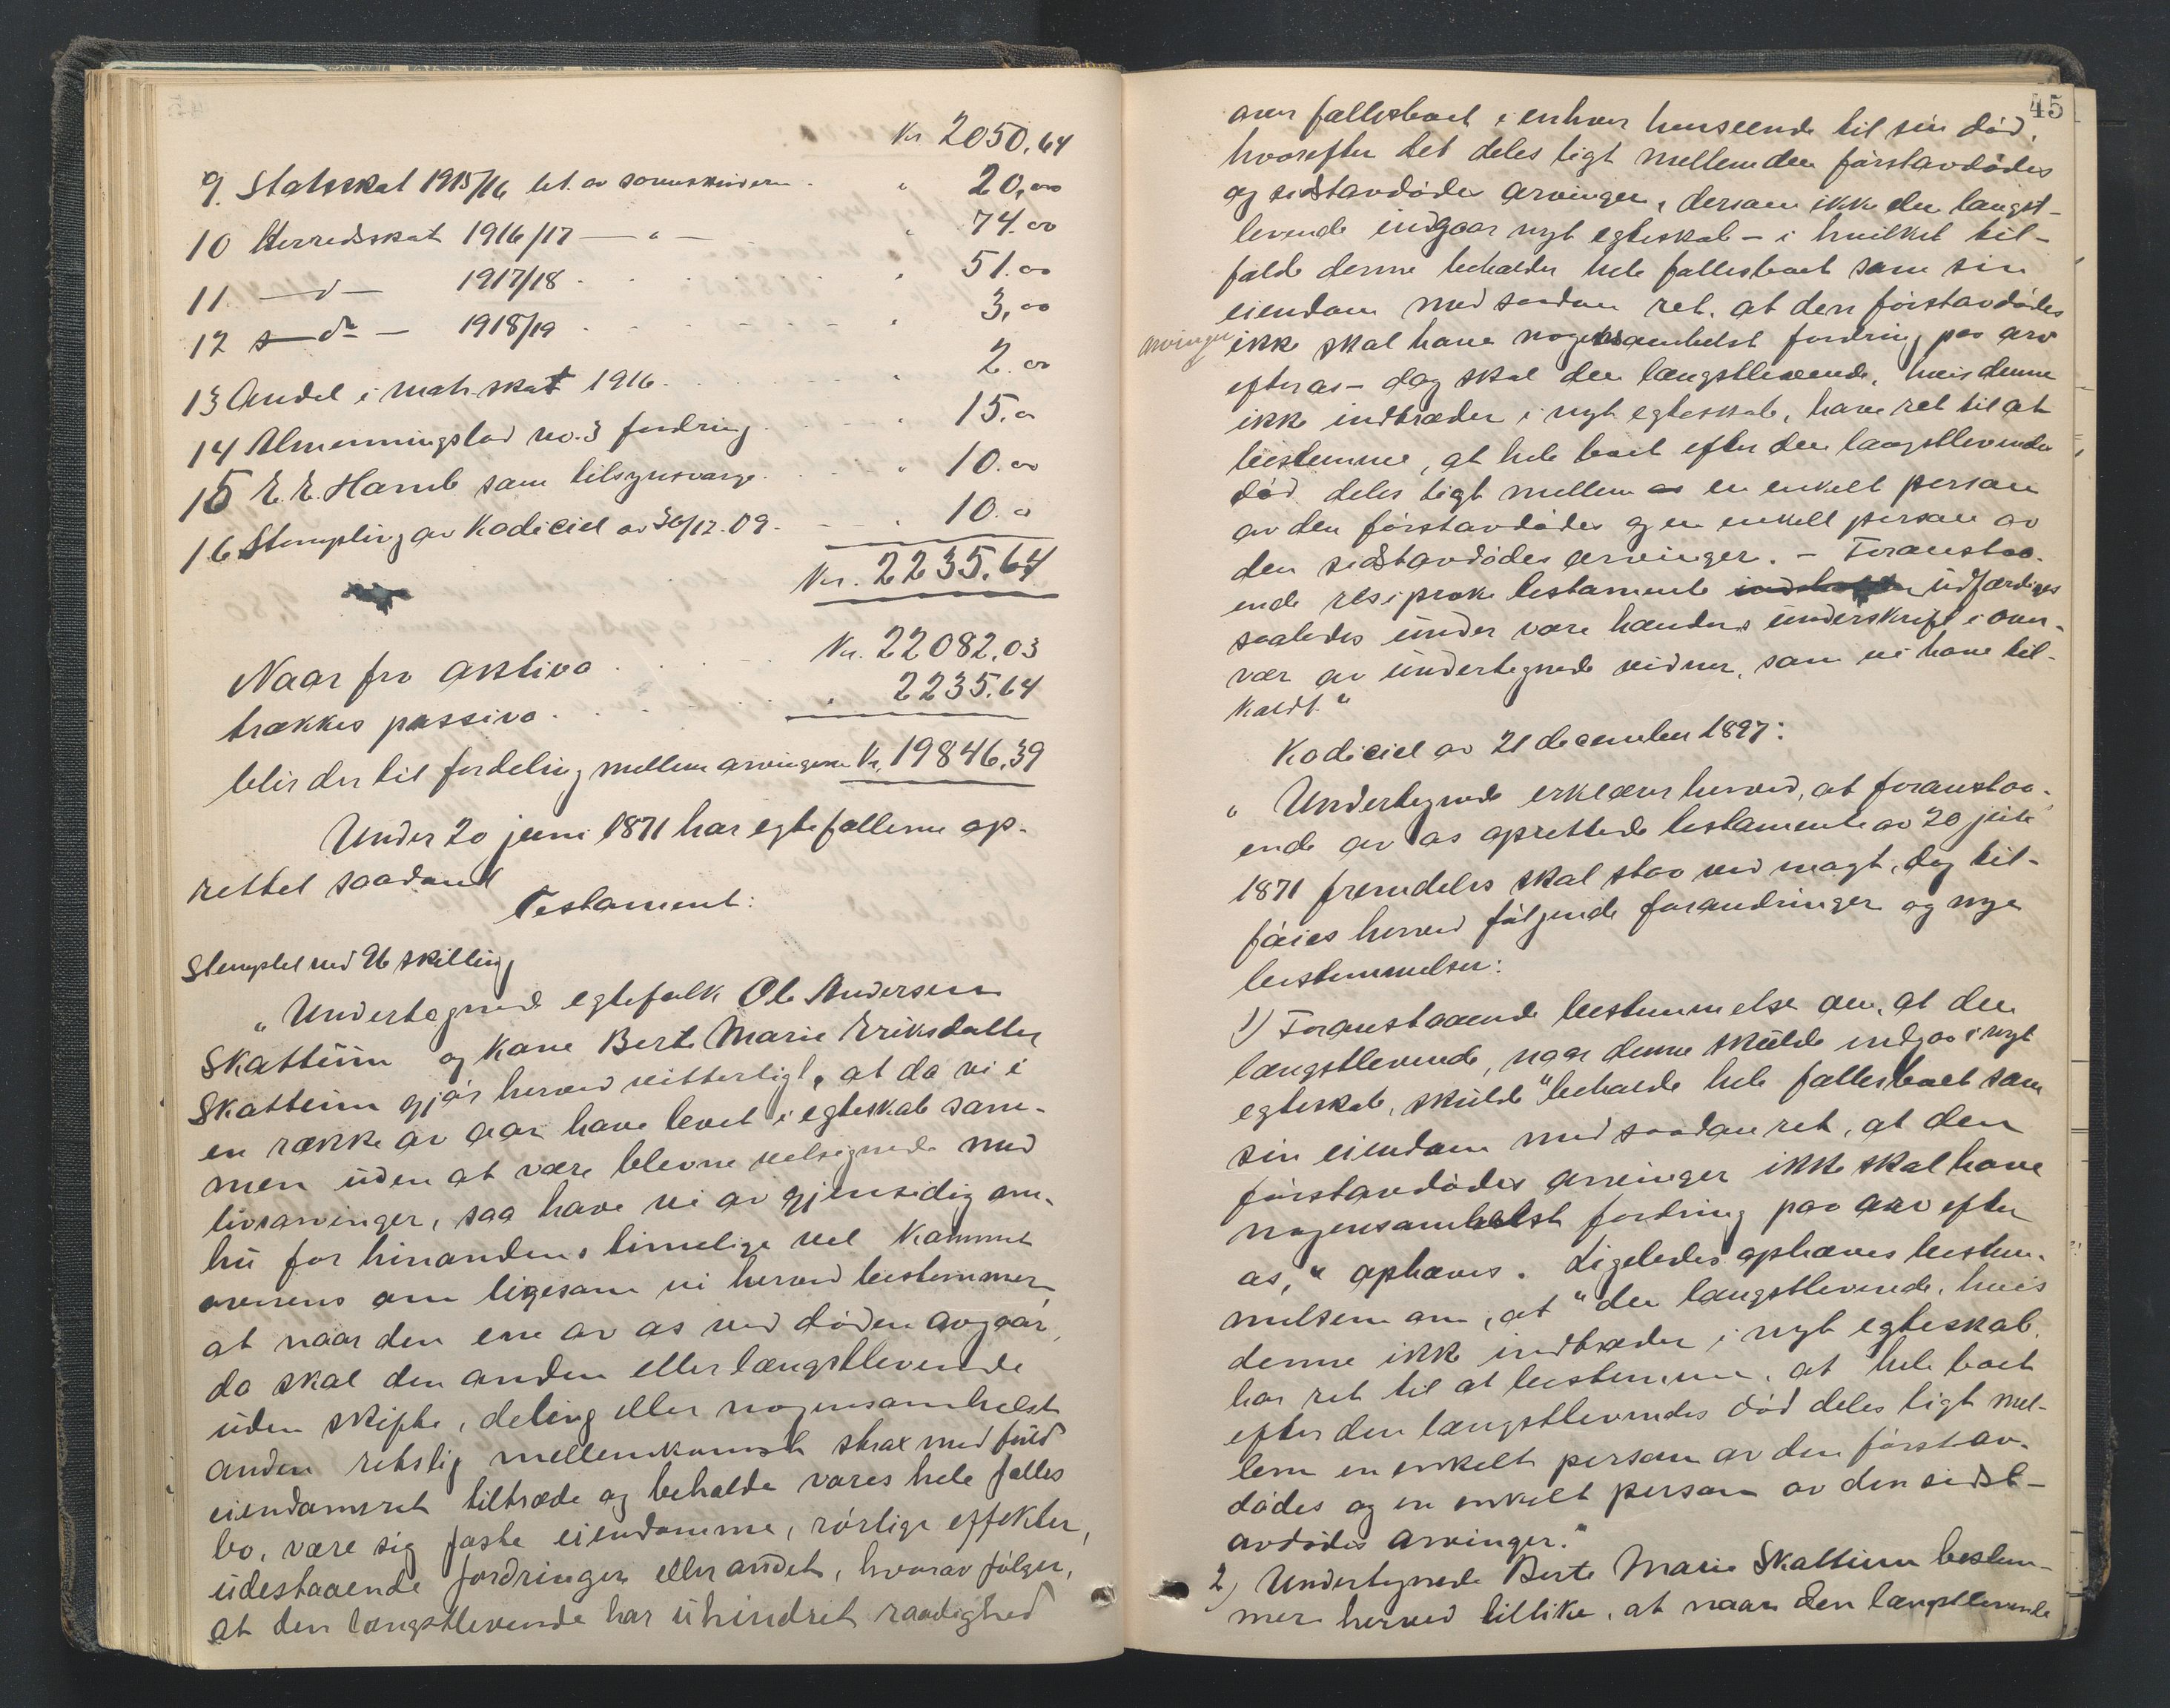 Kr 2050.64
9. Statsskat 1915/16 bet. av " 20,00
10 Herredsskat 1916/17 — " — " 74.00
11 — d — 1917/18 . " 51.00
12 — do — 1918/19 " 3,00
13 Andel i matr. skat 1916. " 2.00
14 Almenningslod no. 3 fordring " 15.0
15 E. E. Harub som tilsynsverge. " 10.00
16 Stempling av Kodiciel av 30/12.09. " 10.0
Kr. 2235.64
Naar fra aktiva Kr. 22082.03
trækkes passiva . " 2235.64
blir der til fordeling mellem arvingerne Kr. 19846.39
Under 20 juni 1871 har egtefællerne op-
rettet saadant
Testament:
Stemplet med 96 skilling
"Undertegnede egtefolk Ole Andersen
Skattüm og Kone Berte Marie Eriksdatter
Skattüm gjør herved vitterligt, at da vi i
en række av aar have levet i egteskab sam-
men uden at være blevne velsignede med
livsarvinger, saa have vi av gjensidig om-
hü for hinandens timelige vel kommet
overens om ligesom vi herved bestemmer,
at naar den ene av os ved døden avgaar,
da skal den anden eller længstlevende
uden skifte, deling eller nogensomhelst
anden retslig mellemkomst strax med füld
eiendomsret tiltræde og beholde vores hele fælles
bo, være sig faste eiendomme, rørlige effekter,
üdestaaende fordringer eller andet, hvorav følger,
at den længstlevende har ühindret raadighed
45
over fællesboet i enhver henseende til sin død,
hvorefter det deles ligt mellem den førstavdødes
og sidstavdødes arvinger, dersom ikke den længst-
levende indgaar nyt egteskab — i hvilket til-
fælde denne beholder hele fællesboet som sin
eiendom med saadan ret, at den førstavdødes
arvinger ikke skal have nogensomhelst fordring paa arv
efter os — dog skal den længstlevende, hvis denne
ikke indtræder i nyt egteskab, have ret til at
bestemme, at hele boet efter den længstlevendes
død deles ligt mellem en enkelt person
av den førstavdødes og en enkelt person av
den sidstavdødes arvinger. — Foranstaa-
ende resiproke testamente üdfærdiges
saaledes ünder vore hænders ünderskrift i over-
vær av ündertegnede vidner, som vi have til-
kaldt."
Kodiciel av 21 december 1897:
"Undertegnede erklærer herved, at foranstaa-
ende av os oprettede testamente av 20 juli
1871 fremdeles skal staa ved magt, dog til-
føies herved følgende forandringer og nye
bestemmelser:
1) Foranstaaende bestemmelse om, at den
længstlevende, naar denne skülde indgaa i nyt
egteskab, skülde "beholde hele fællesboet som
sin eiendom med saadan ret, at den
førstavdødes arvinger ikke skal have
nogensomhelst fordring paa arv efter
os," ophæves. Ligeledes ophæves bestem-
melsen om, at "den længstlevende, hvis
denne ikke indtræder i nyt egteskab,
har ret til at bestemme, at hele boet
efter den længstlevendes død deles ligt mel-
lem en enkelt person av den førstav-
dødes og en enkelt person av den sidst-
avdødes arvinger."
2) Undertegnede Berte Marie Skattüm bestem-
mer herved tillike, at naar den længstlevende